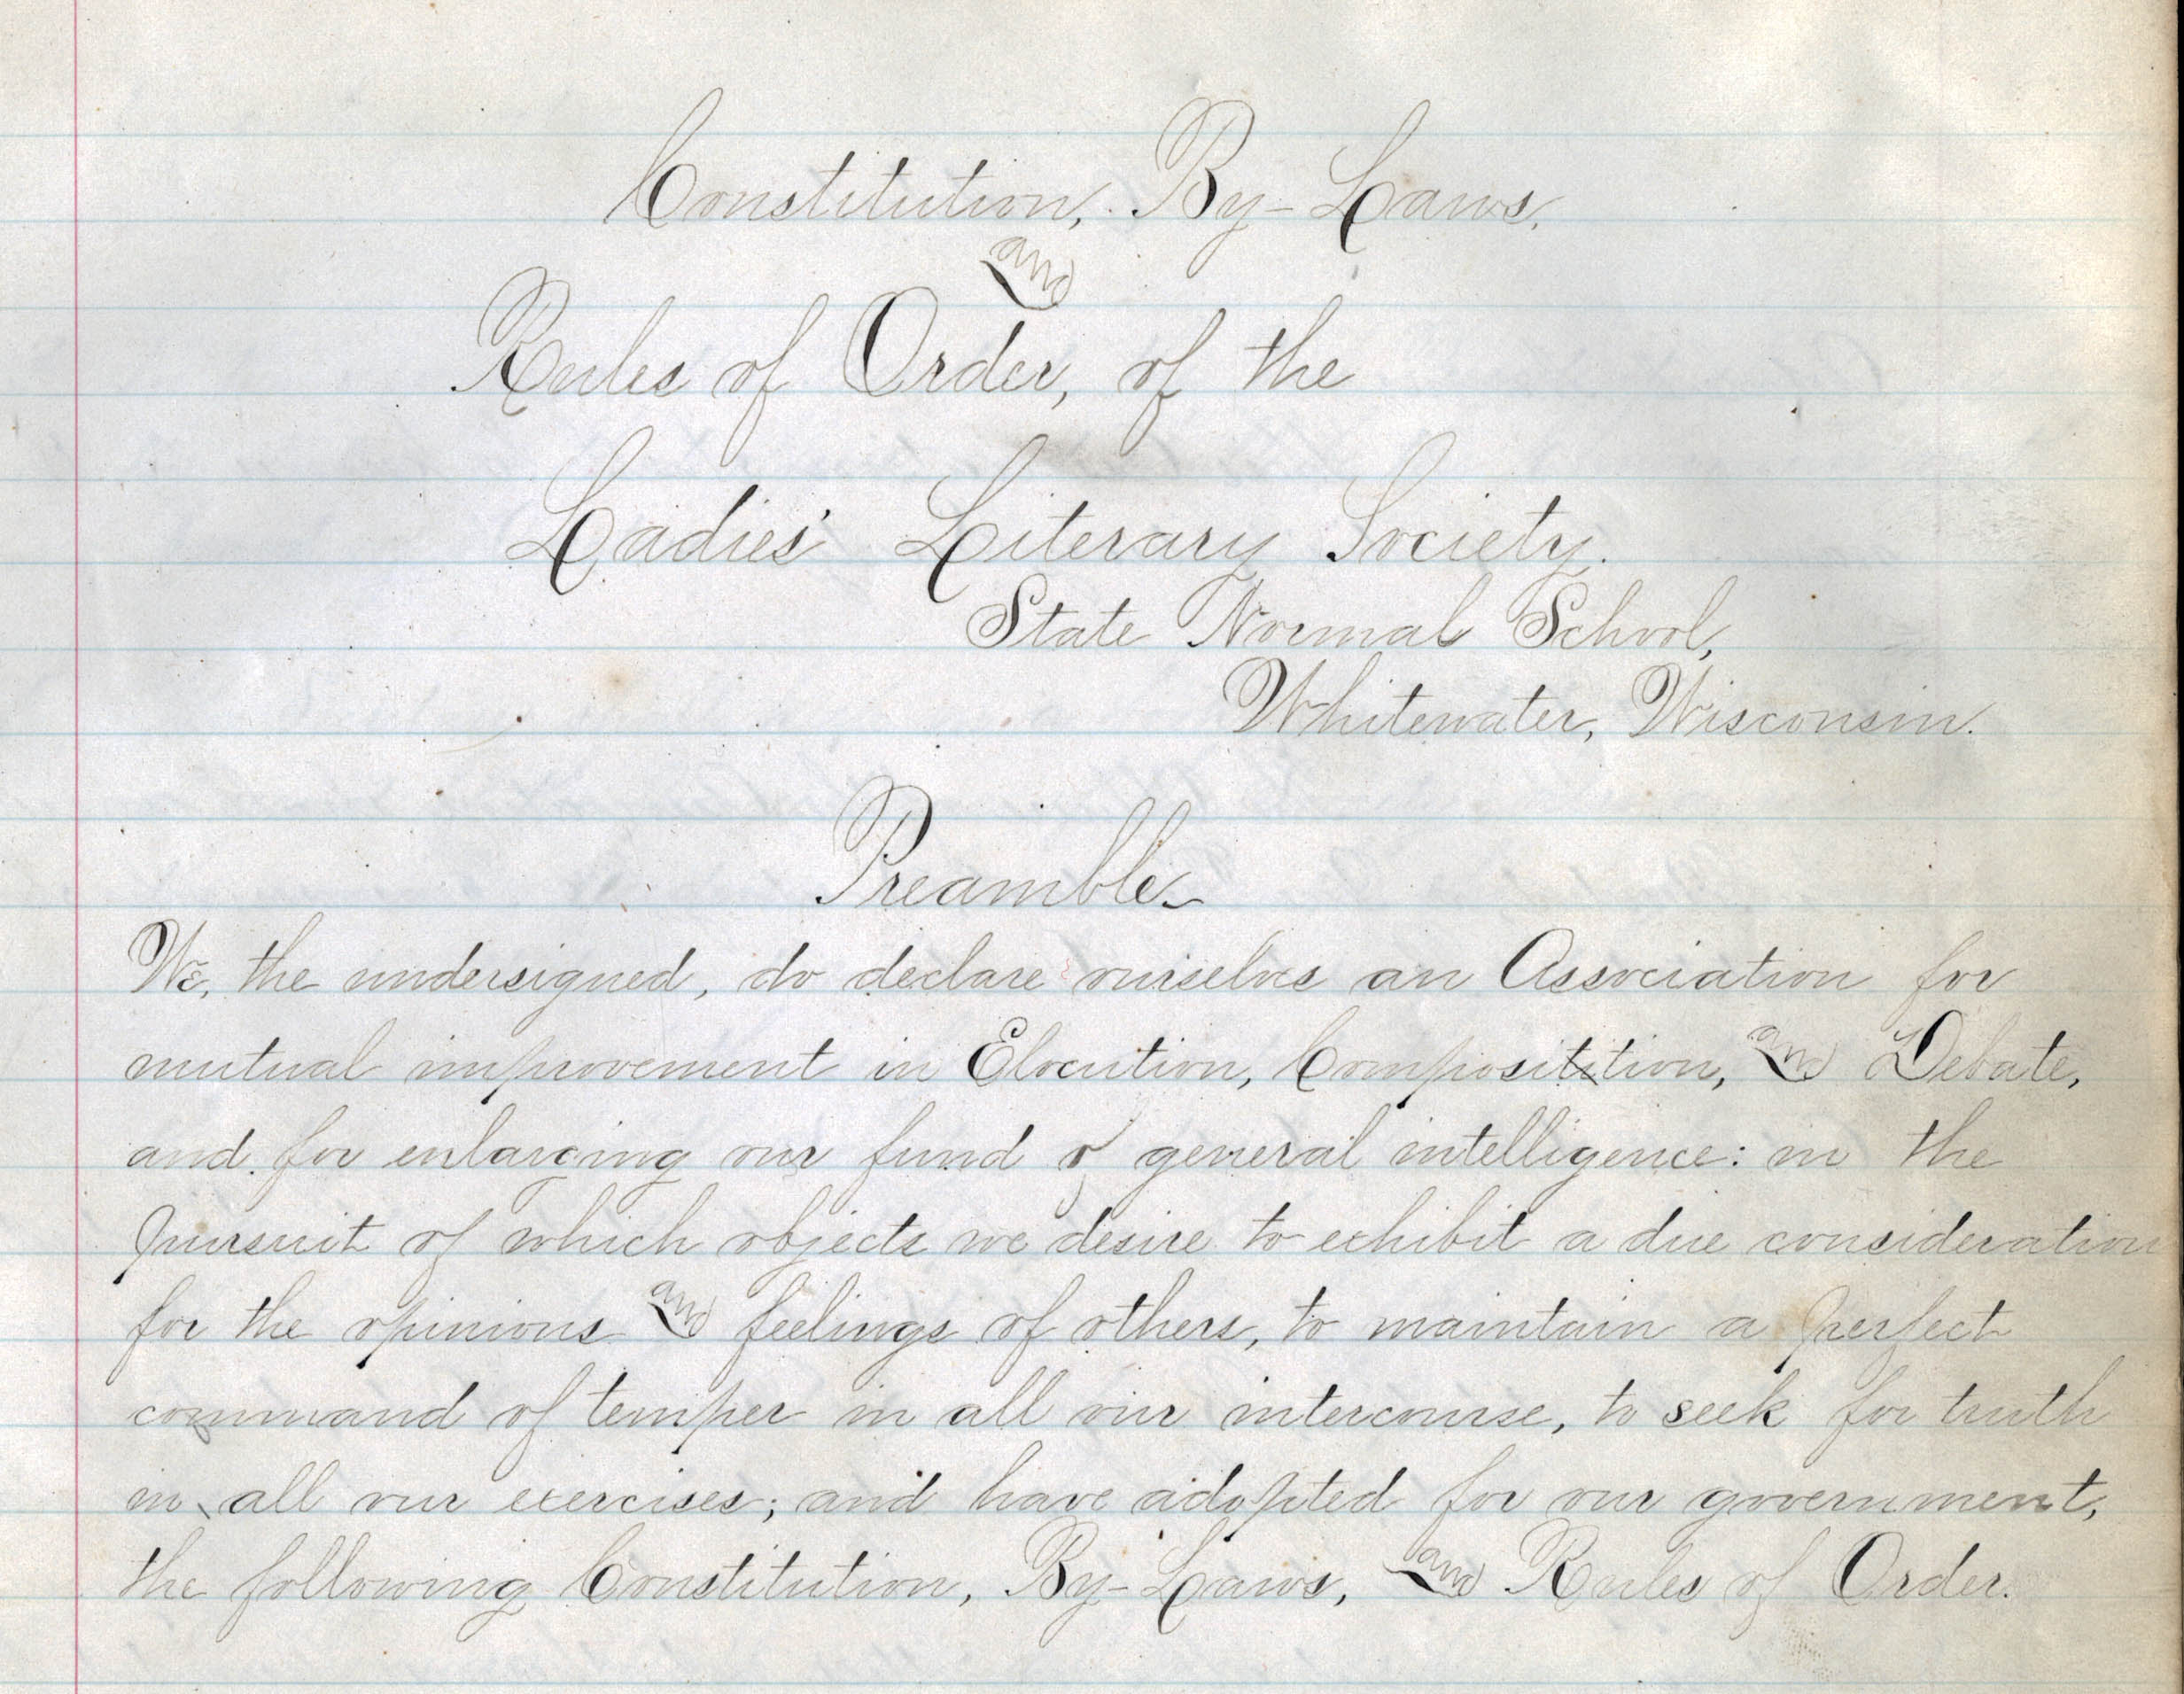 Constitution, By-Laws,
and
Rules of Order, of the
Ladies' Literary Society.
State Normal School,
Whitewater, Wisconsin.
Preamble
We, the undersigned, do declare ourselves an Association for
mutual improvement in Elocution, Compositition, and Debate,
and for enlarging our fund of general intelligence: in the
pursuit of which objects we desire to exhibit a due consideration
for the opinions and feelings of others, to maintain a perfect
command of temper in all our intercourse, to seek for truth
in all our exercises; and have adopted for our government,
the following Constitution, By-Laws, and Rules of Order.